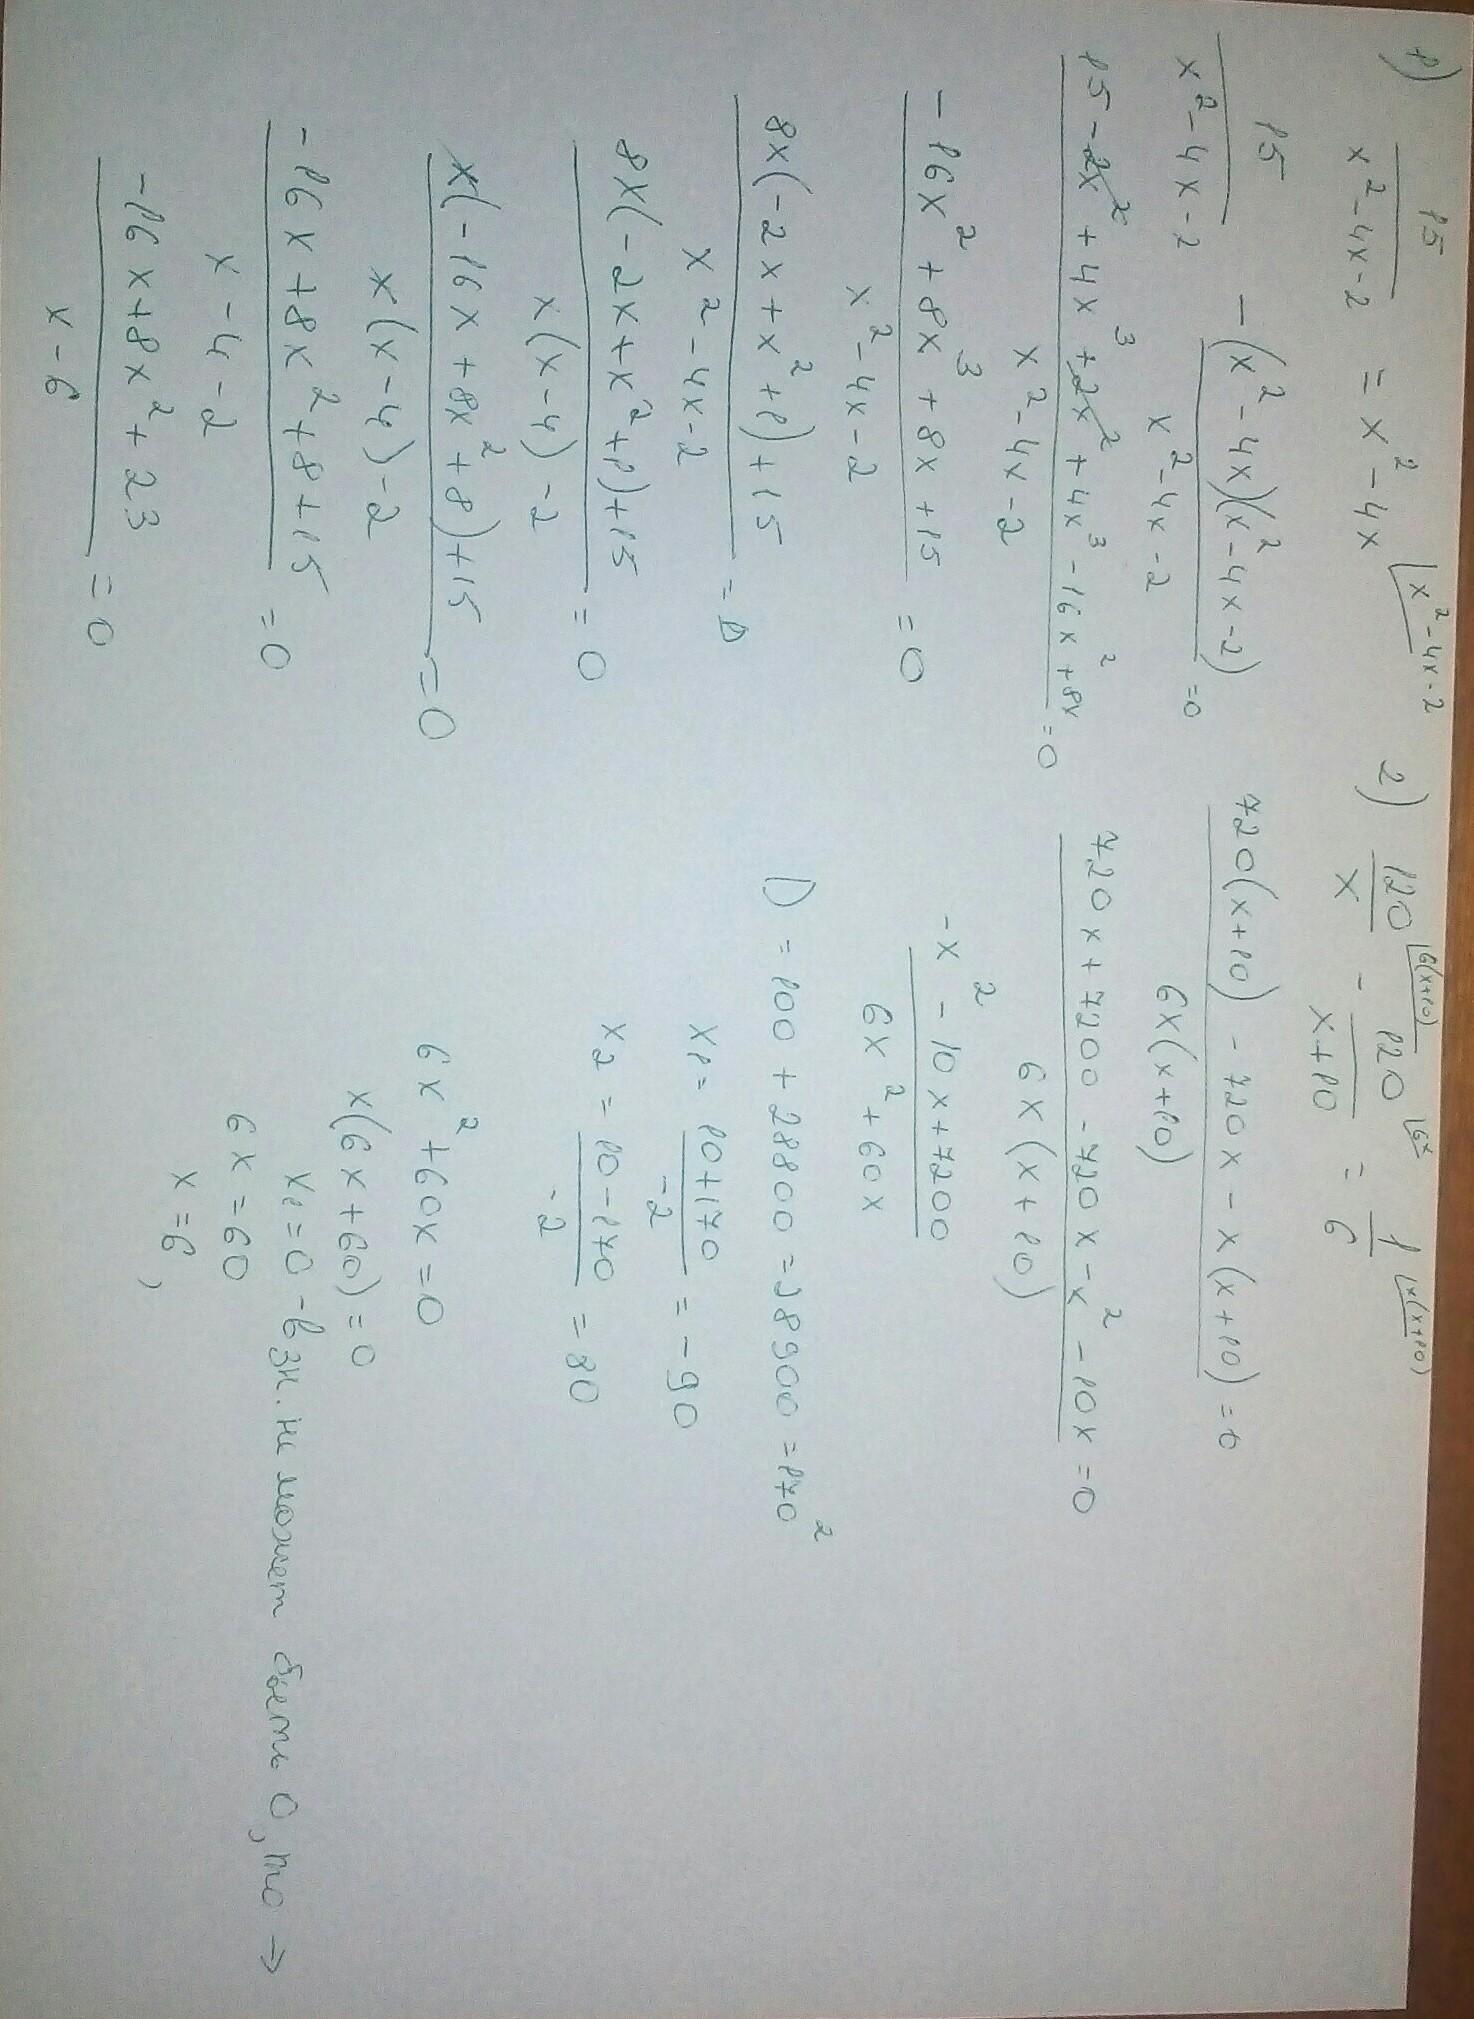 1) 15/(x² - 4x - 2) = x² - 4x ⌊x² - 4x - 2
15/(x² - 4x - 2) - (x² - 4x)(x² - 4x - 2)/(x² - 4x - 2) = 0
(15 - 2x² + 4x³ + 2x² + 4x³ - 16x² + 8x)/(x² - 4x - 2) = 0
(-16x² + 8x³ + 8x + 15)/(x² - 4x - 2) = 0
(8x(-2x + x² + 1) + 15)/(x² - 4x - 2) = 0
(8x(-2x + x² + 1) + 15)/(x(x - 4) - 2) = 0
(x(-16x + 8x² + 8) + 15)/(x(x - 4) - 2) = 0
(-16x + 8x² + 8 + 15)/(x - 4 - 2) = 0
(-16x + 8x² + 23)/(x - 6) = 0
2) 120/x ⌊6(x+10) - 120/(x+10) ⌊6x = 1/6 ⌊x(x+10)
(720(x+10) - 720x - x(x+10))/(6x(x+10)) = 0
(720x + 7200 - 720x - x² - 10x)/(6x(x+10)) = 0
(-x² - 10x + 7200)/(6x² + 60x)
D = 100 + 28800 = 28900 = 170²
x₁ = (10+170)/(-2) = -90
x₂ = (10-170)/(-2) = 80
6x² + 60x = 0
x(6x + 60) = 0
x₁ = 0 - в зн. не может быть 0, то →
6x = 60
x = 6,